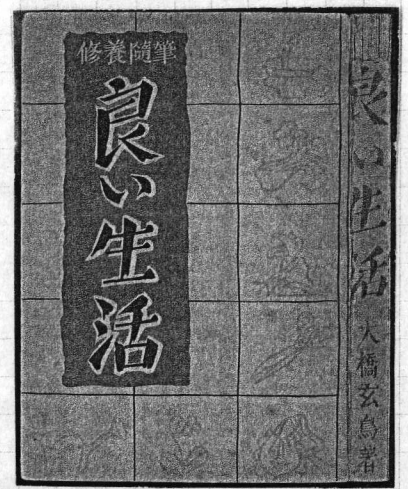 修養隨筆
良い生活
良い生活
大橋玄鳥著